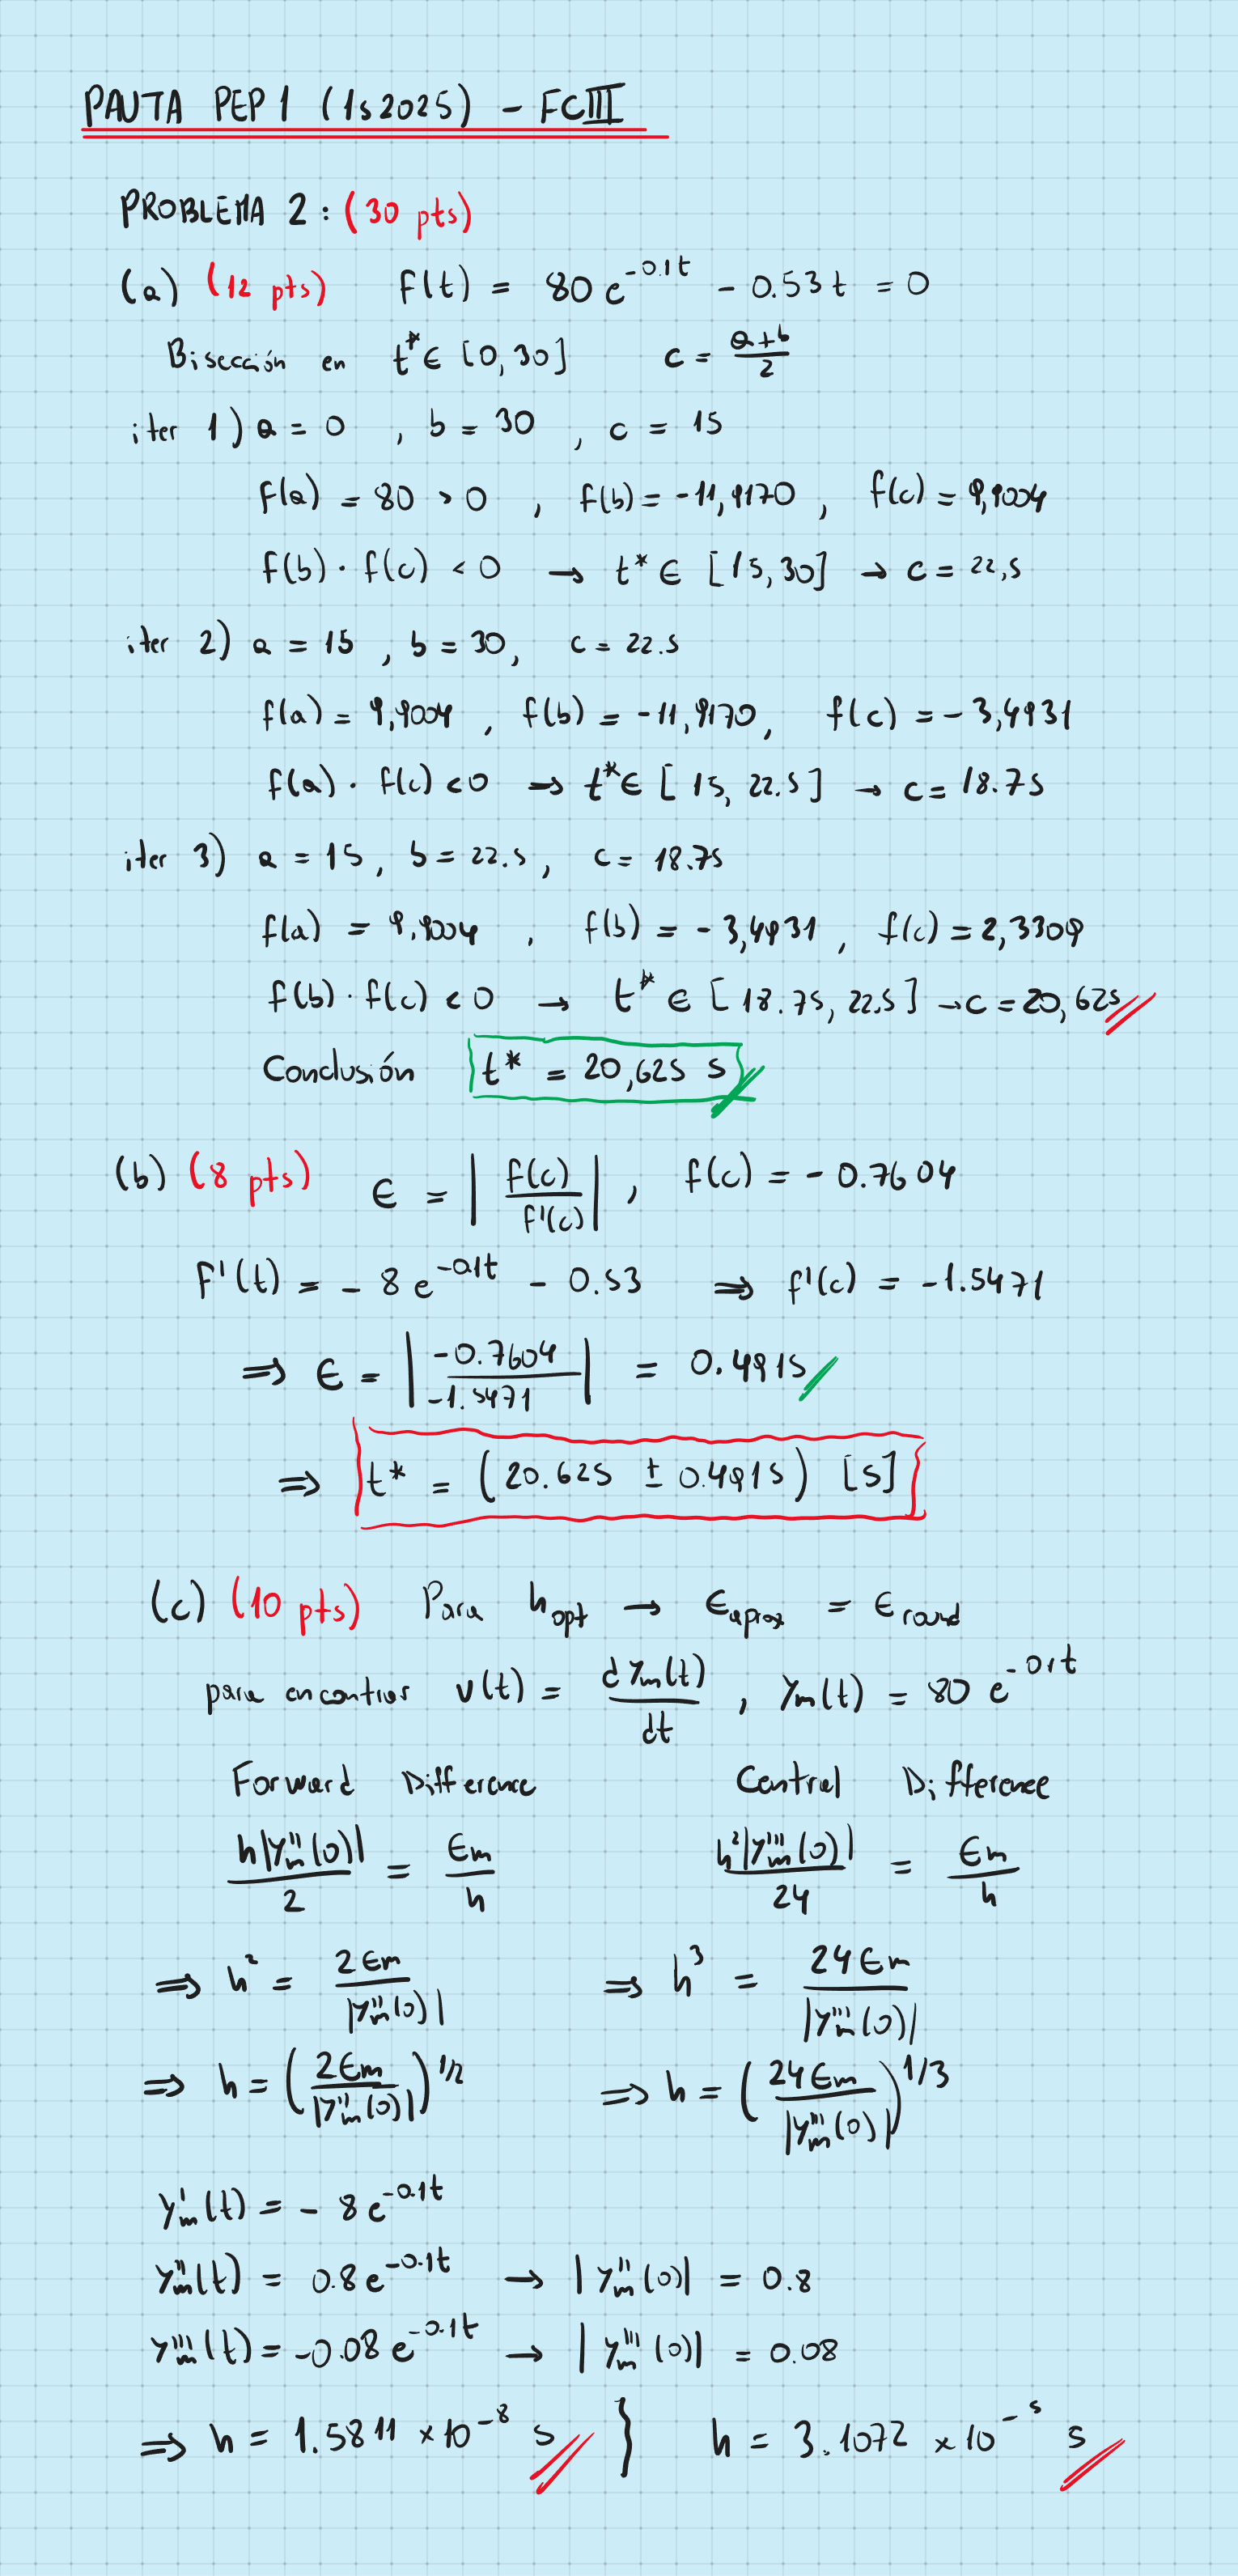 PAUTA PEP 1 (1s2025) - FCIII
PROBLEMA 2: (30 pts)
(a) (12 pts) f(t) = 80 e^{-0.1t} - 0.53t = 0
Bisección en t* ∈ [0, 30] c = (a+b)/2
iter 1) a = 0 , b = 30 , c = 15
f(a) = 80 > 0 , f(b) = -11,9170 , f(c) = 9,9004
f(b) · f(c) < 0 → t* ∈ [15, 30] → c = 22,5
iter 2) a = 15 , b = 30, c = 22.5
f(a) = 9,9004 , f(b) = -11,9170, f(c) = -3,4931
f(a) · f(c) < 0 → t* ∈ [15, 22.5] → c = 18.75
iter 3) a = 15, b = 22.5, c = 18.75
f(a) = 9,9004 , f(b) = -3,4931 , f(c) = 2,3309
f(b) · f(c) < 0 → t* ∈ [18.75, 22.5] → c = 20,625
Conclusión t* = 20,625 s
(b) (8 pts) ϵ = |f(c)/f'(c)| , f(c) = -0.7604
f'(t) = -8 e^{-0.1t} - 0.53 ⇒ f'(c) = -1.5471
⇒ ϵ = |-0.7604/-1.5471| = 0.4915
⇒ t* = (20.625 ± 0.4915) [s]
(c) (10 pts) Para h_opt → ϵ_aprox = ϵ_round
para encontrar v(t) = dy_m(t)/dt , y_m(t) = 80 e^{-0.1t}
Forward Difference Central Difference
h|y_m''(0)|/2 = ϵm/h h²|y_m'''(0)|/24 = ϵm/h
⇒ h² = 2ϵm/|y_m''(0)| ⇒ h³ = 24ϵm/|y_m'''(0)|
⇒ h = (2ϵm/|y_m''(0)|)^{1/2} ⇒ h = (24ϵm/|y_m'''(0)|)^{1/3}
y_m'(t) = -8 e^{-0.1t}
y_m''(t) = 0.8 e^{-0.1t} → |y_m''(0)| = 0.8
y_m'''(t) = -0.08 e^{-0.1t} → |y_m'''(0)| = 0.08
⇒ h = 1.5811 × 10^{-8} s } h = 3.1072 × 10^{-5} s